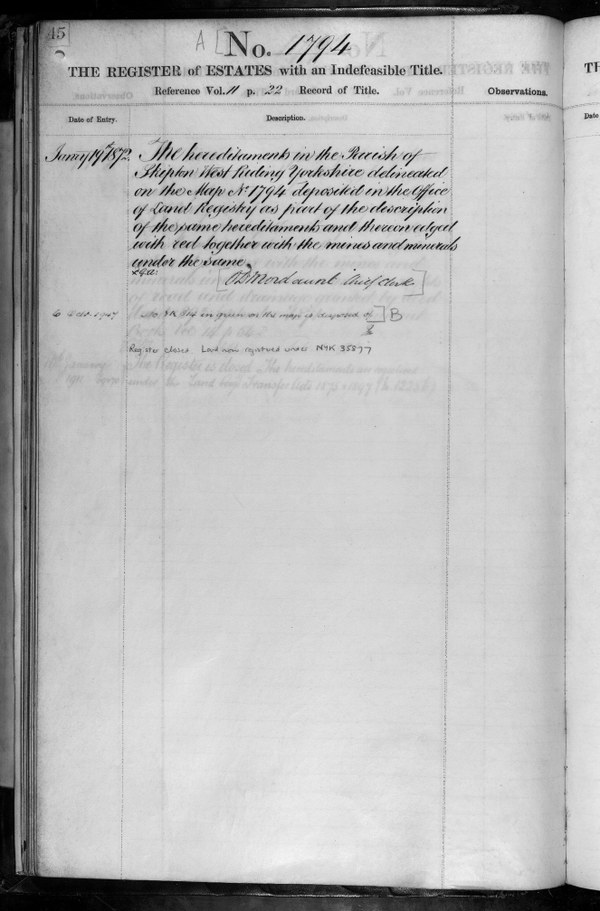 45
A [ No. 1794
THE REGISTER of ESTATES with an Indefeasible Title.
Reference Vol. 11 p. 22 Record of Title.
Observations.
Date of Entry. Description.
19th 1872. The hereditaments in the Parish of
Skipton West Riding Yorkshire delineated
on the Map No 1794 deposited in the Office
of Land Registry as part of the description
of the same hereditaments and thereon edged
with red together with the mines and minerals
under the same.
[ Chief Clerk ]
6 1947 No. in green on the map is disposed of ] B
Register closed Land now registered under NYK 35577
TH
Date